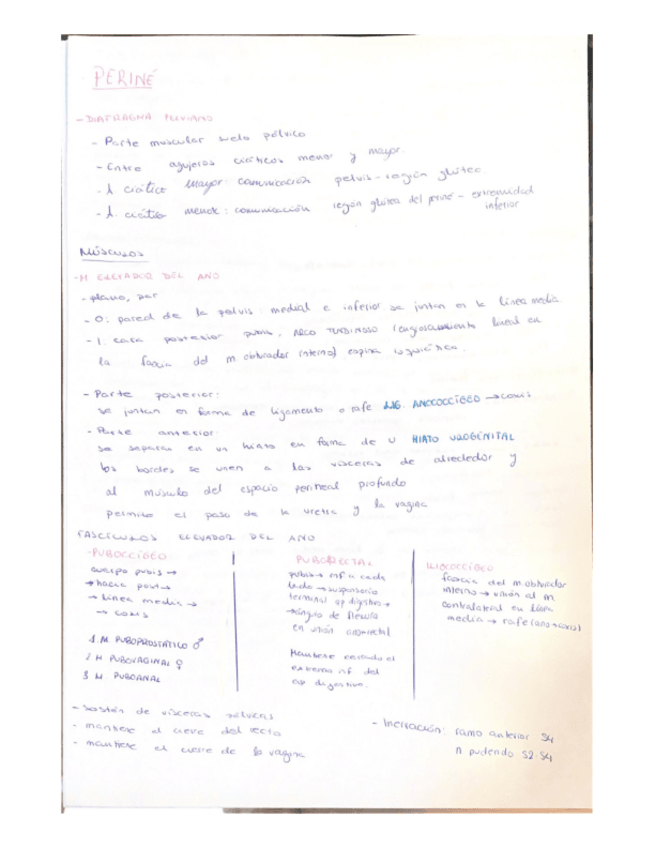 PERINÉ
- DIAFRAGMA PELVIANO
- Parte muscular suelo pélvico
- Entre agujeros ciáticos menor y mayor.
- A ciático mayor: comunicación pelvis - región glútea.
- A. ciático menor: comunicación región glútea del periné - extremidad
inferior
MÚSCULOS
- M ELEVADOR DEL ANO
- plano, par
- O: pared de la pelvis: medial e inferior se juntan en la línea media
- I: cara posterior pubis, ARCO TENDINOSO (engrosamiento lineal en
la fascia del m obturador interno) espina isquiática.
- Parte posterior:
se juntan en forma de ligamento o rafe LIG. ANOCOCCÍGEO → coxis
- Parte anterior:
se separan en un hiato en forma de U HIATO UROGENITAL
los bordes se unen a las vísceras de alrededor y
al músculo del espacio perineal profundo
permite el paso de la uretra y la vagina
FASCÍCULOS ELEVADOR DEL ANO
- PUBOCCÍGEO
cuerpo pubis →
→ hacia post →
→ línea media →
→ coxis
1. M. PUBOPROSTÁTICO ♂
2 M. PUBOVAGINAL ♀
3 M. PUBOANAL
PUBORECTAL
pubis → inf a cada
lado → suspensorio
terminal ap digestivo →
→ ángulo de flexura
en unión anorrectal
Mantiene cerrado el
extremo inf del
ap digestivo.
ILIOCOCCÍGEO
fascia del m obturador
interno → unión al m
contralateral en línea
media → rafe
- sostén de vísceras pélvicas
- mantiene el cierre del recto
- mantiene el cierre de la vagina
- Inervación: ramo anterior S4
n pudendo S2-S4